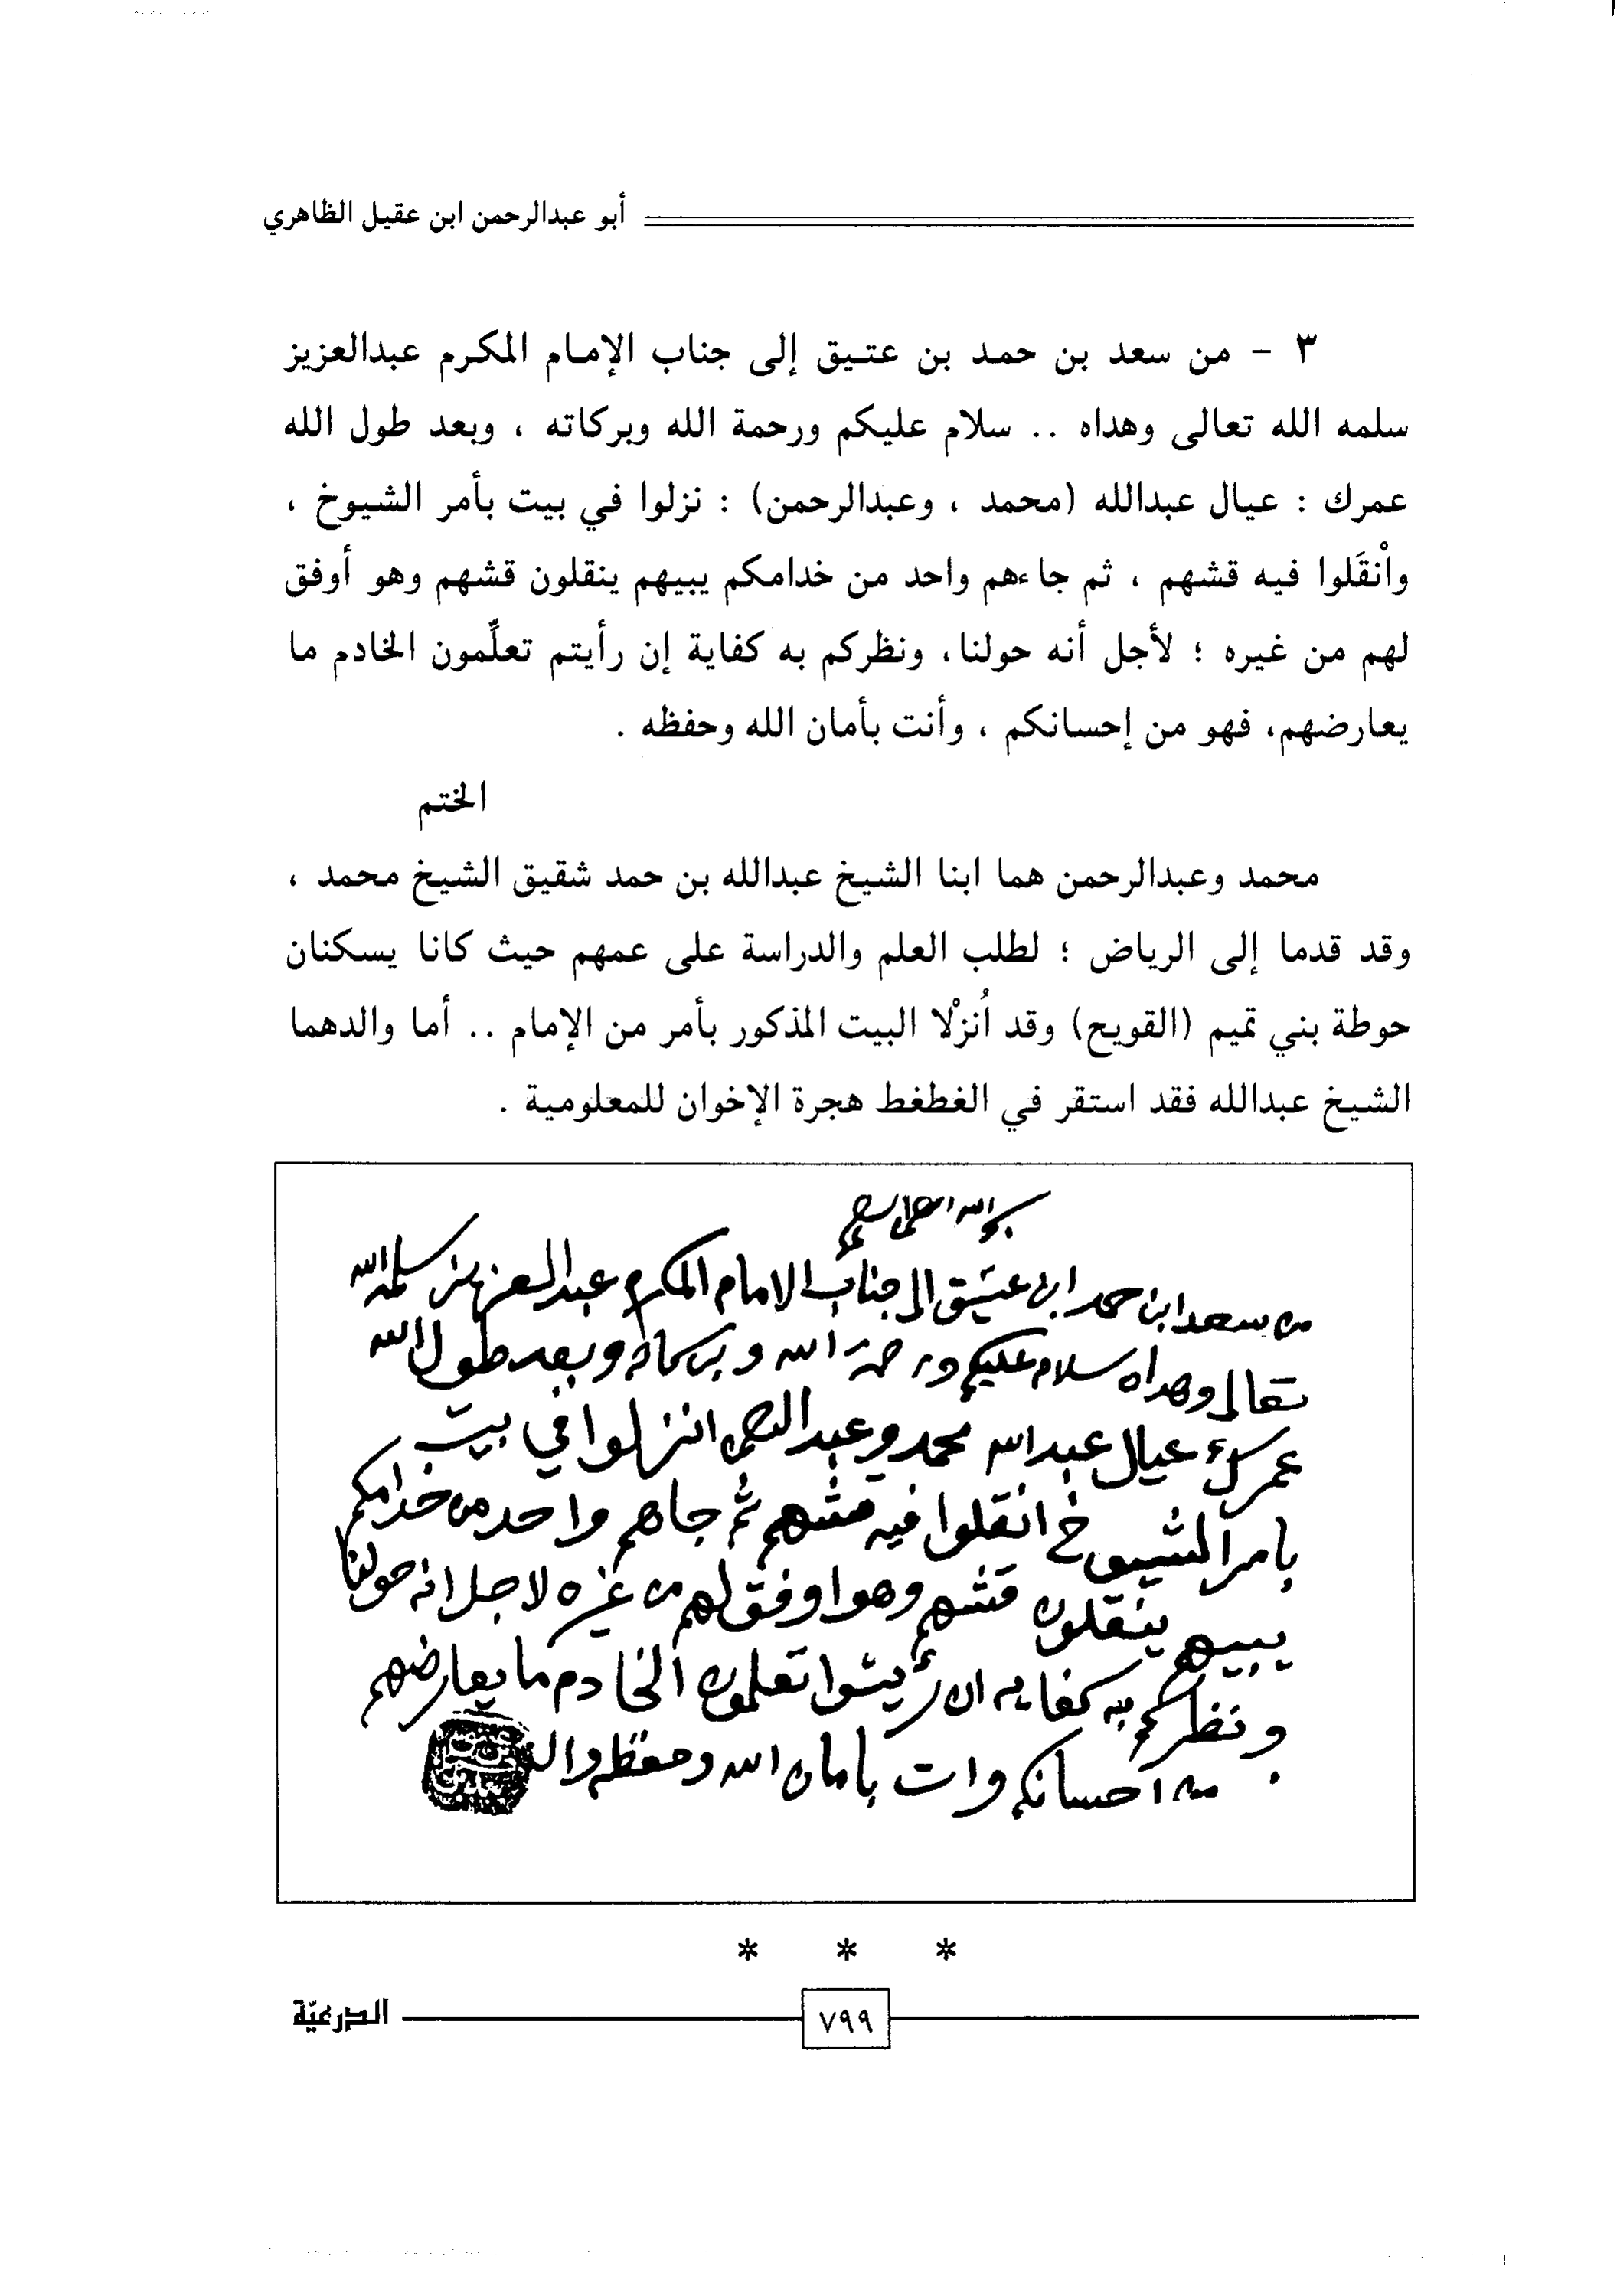 أبو عبدالرحمن ابن عقيل الظاهري
٣ - من سعد بن حمد بن عتيق إلى جناب الإمام المكرم عبدالعزيز
سلمه الله تعالى وهداه .. سلام عليكم ورحمة الله وبركاته ، وبعد طول الله
عمرك : عيال عبدالله (محمد ، وعبدالرحمن) : نزلوا في بيت بأمر الشيوخ ،
وانْقَلوا فيه قشهم ، ثم جاءهم واحد من خدامكم يبيهم ينقلون قشهم وهو أوفق
لهم من غيره ؛ لأجل أنه حولنا، ونظركم به كفاية إن رأيتم تعلِّمون الخادم ما
يعارضهم، فهو من إحسانكم ، وأنت بأمان الله وحفظه .
الختم
محمد وعبدالرحمن هما ابنا الشيخ عبدالله بن حمد شقيق الشيخ محمد ،
وقد قدما إلى الرياض ؛ لطلب العلم والدراسة على عمهم حيث كانا يسكنان
حوطة بني تميم (القويح) وقد أُنزلْا البيت المذكور بأمر من الإمام .. أما والدهما
الشيخ عبدالله فقد استقر في الغطغط هجرة الإخوان للمعلومية .
بسم الله الرحمن الرحيم
من سعد ابن حمد ابن عتيق الى جناب الامام المكرم عبد العزيز سلمه الله
تعالى وهداه سلام عليكم ورحمة الله وبركاته وبعد طول الله
عمرك عيال عبدالله محمد وعبد الرحمن انزلوا في بيت
بامر الشيوخ انقلوا فيه قشهم ثم جاهم واحد من خدامكم
يبيهم ينقلون قشهم وهو اوفق لهم من غيره لاجل انه حولنا
ونظركم به كفايه ان رئيتوا تعلمون الخادم ما يعارضهم
من احسانكم وانت بامان الله وحفظه
* * *
٧٩٩
الدرعيّة